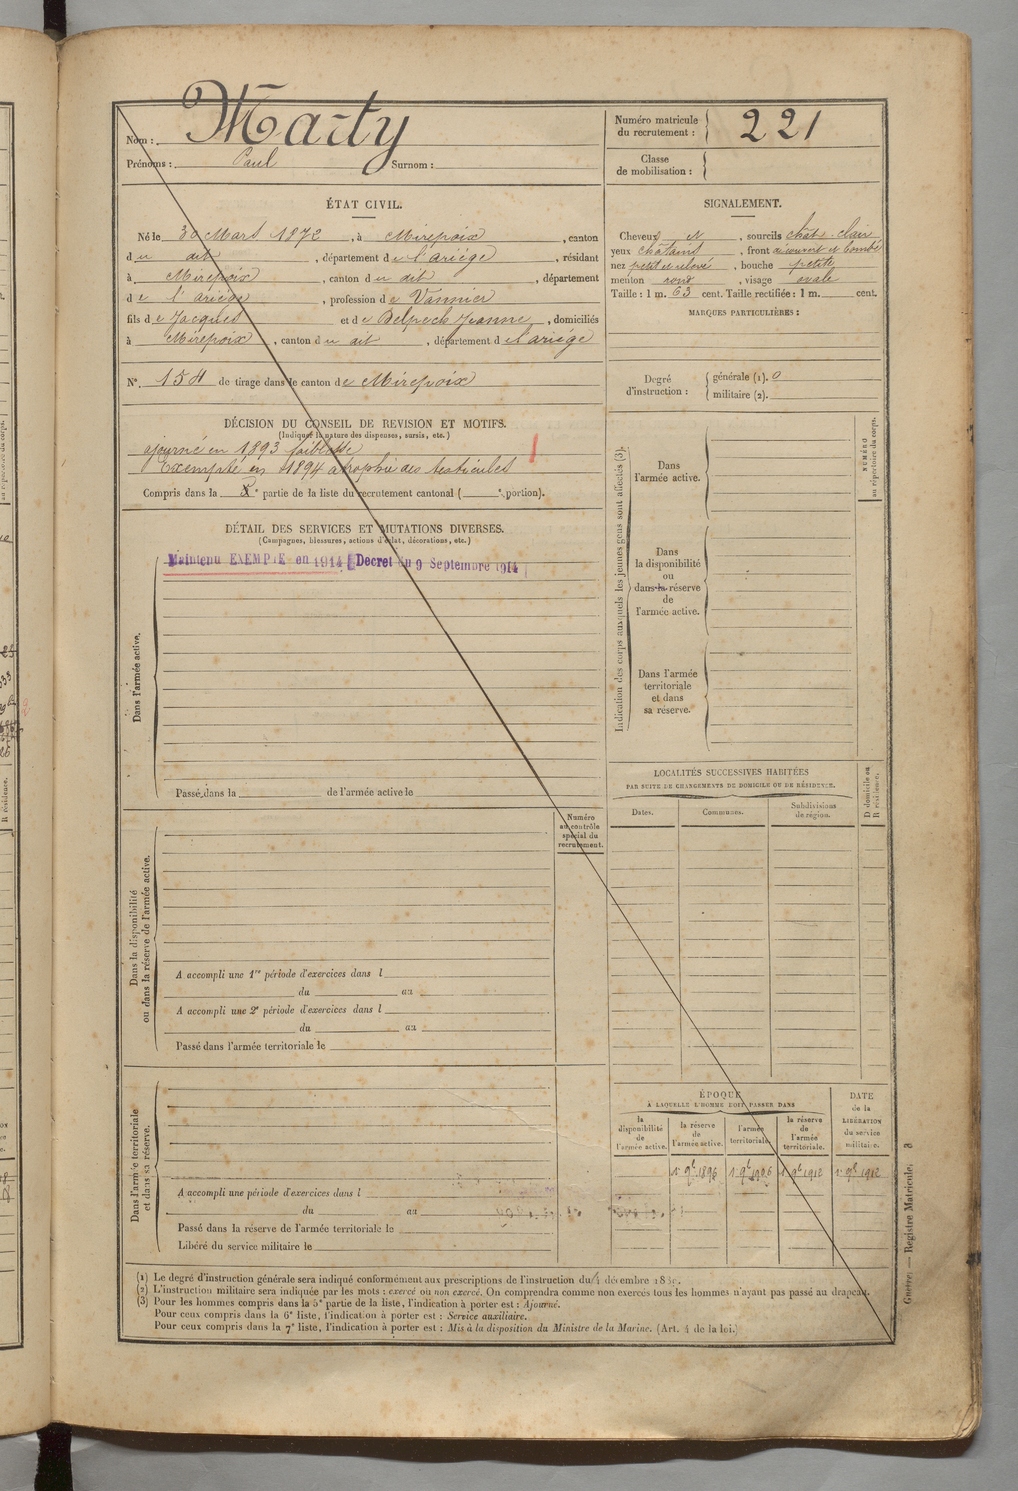 Nom : Marty
Prénoms : Paul Surnom :
Numéro matricule
du recrutement : 221
Classe
de mobilisation :
ÉTAT CIVIL.
Né le 30 Mars 1872, à Mirepoix, canton
du dit, département de l'ariége, résidant
à Mirepoix, canton du dit, département
de l'ariége, profession de Vannier
fils de Jacques et de Belpech Jeanne, domiciliés
à Mirepoix, canton du dit, département de l'ariége
N° 154 de tirage dans le canton de Mirepoix
SIGNALEMENT.
Cheveux et, sourcils chât. clair
yeux châtains, front découvert et bombé
nez petit et relevé, bouche petite
menton rond, visage ovale
Taille : 1 m. 63 cent. Taille rectifiée : 1 m. cent.
MARQUES PARTICULIÈRES :
Degré
d'instruction :
générale (1). 0
militaire (2).
DÉCISION DU CONSEIL DE REVISION ET MOTIFS.
(Indiquer la nature des dispenses, sursis, etc.)
ajourné en 1893 faiblesse
Exempté en 1894 atrophie des testicules
Compris dans la e partie de la liste du recrutement cantonal ( e portion).
DÉTAIL DES SERVICES ET MUTATIONS DIVERSES.
(Campagnes, blessures, actions d'éclat, décorations, etc.)
Maintenu EXEMPTE en 1914 Decret du 9 Septembre 1914
Dans l'armée active.
Passé dans la de l'armée active le
Numéro
au contrôle
spécial du
recrutement.
Dans la disponibilité
ou dans la réserve de l'armée active.
A accompli une 1re période d'exercices dans l
du au
A accompli une 2e période d'exercices dans l
du au
Passé dans l'armée territoriale le
Dans l'armée territoriale
et dans sa réserve.
A accompli une période d'exercices dans l
du au
Passé dans la réserve de l'armée territoriale le
Libéré du service militaire le
Indication des corps auxquels les jeunes gens sont affectés (3).
NUMÉRO
au répertoire du corps.
Dans
l'armée active.
Dans
la disponibilité
ou
dans la réserve
de
l'armée active.
Dans l'armée
territoriale
et dans
sa réserve.
LOCALITÉS SUCCESSIVES HABITÉES
PAR SUITE DE CHANGEMENTS DE DOMICILE OU DE RÉSIDENCE.
Dates. Communes. Subdivisions
de région.
D domicile ou
R résidence.
ÉPOQUE
À LAQUELLE L'HOMME DOIT PASSER DANS
la
disponibilité
de
l'armée active.
la réserve
de
l'armée active.
l'armée
territoriale.
la réserve
de
l'armée
territoriale.
DATE
de la
LIBÉRATION
du service
militaire.
1er 9b 1896 1er 9b 1906 1er 9b 1912 1er 9b 1912
(1) Le degré d'instruction générale sera indiqué conformément aux prescriptions de l'instruction du 4 décembre 1889.
(2) L'instruction militaire sera indiquée par les mots : exercé ou non exercé. On comprendra comme non exercés tous les hommes n'ayant pas passé au drapeau.
(3) Pour les hommes compris dans la 5e partie de la liste, l'indication à porter est : Ajourné.
Pour ceux compris dans la 6e liste, l'indication à porter est : Service auxiliaire.
Pour ceux compris dans la 7e liste, l'indication à porter est : Mis à la disposition du Ministre de la Marine. (Art. 4 de la loi.)
Guerre. — Registre Matricule.